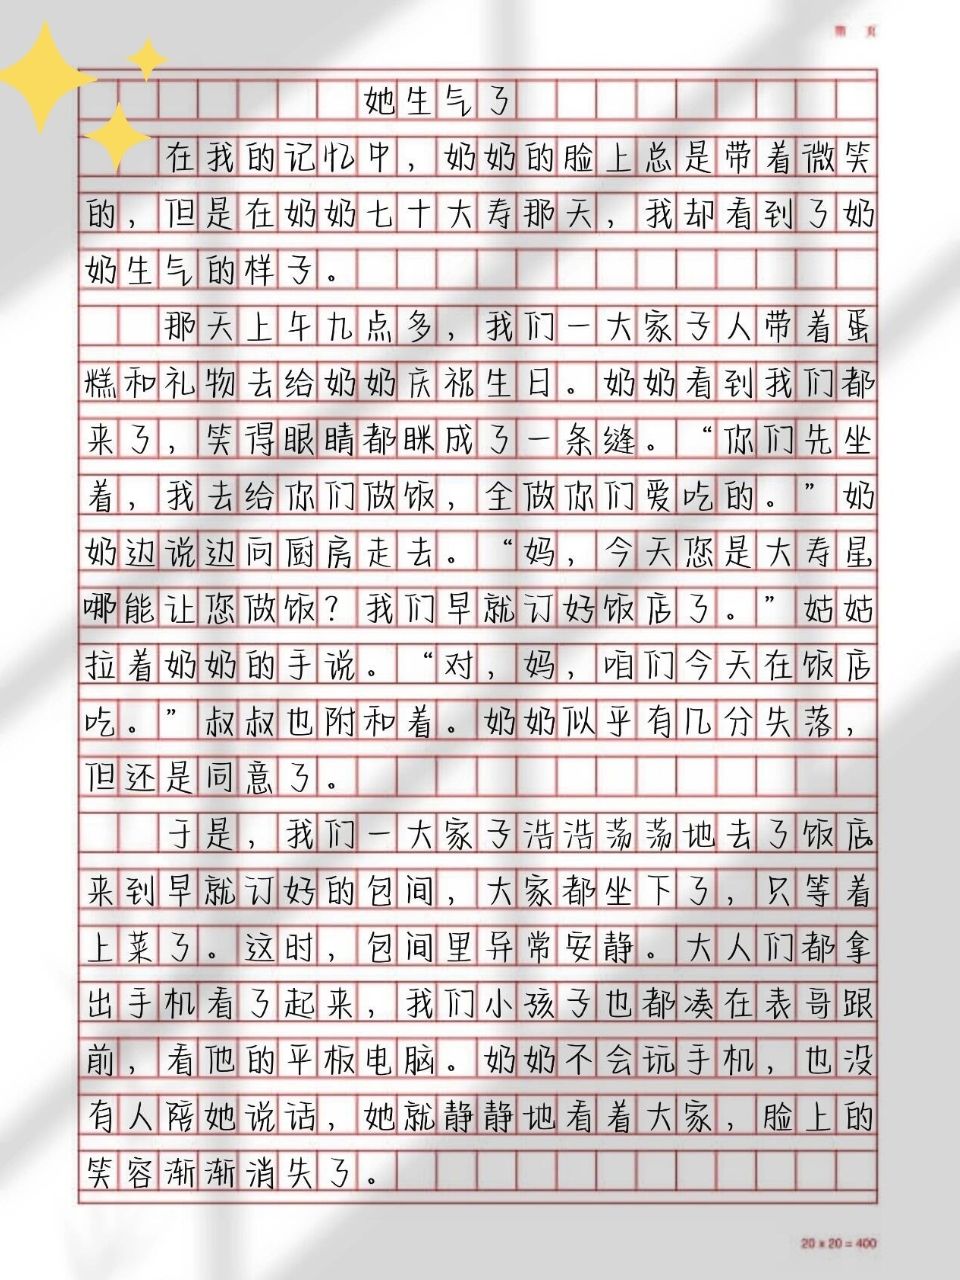 第 页
她生气了
在我的记忆中，奶奶的脸上总是带着微笑
的，但是在奶奶七十大寿那天，我却看到了奶
奶生气的样子。
那天上午九点多，我们一大家子人带着蛋
糕和礼物去给奶奶庆祝生日。奶奶看到我们都
来了，笑得眼睛都眯成了一条缝。“你们先坐
着，我去给你们做饭，全做你们爱吃的。”奶
奶边说边向厨房走去。“妈，今天您是大寿星
哪能让您做饭？我们早就订好饭店了。”姑姑
拉着奶奶的手说。“对，妈，咱们今天在饭店
吃。”叔叔也附和着。奶奶似乎有几分失落，
但还是同意了。
于是，我们一大家子浩浩荡荡地去了饭店。
来到早就订好的包间，大家都坐下了，只等着
上菜了。这时，包间里异常安静。大人们都拿
出手机看了起来，我们小孩子也都凑在表哥跟
前，看他的平板电脑。奶奶不会玩手机，也没
有人陪她说话，她就静静地看着大家，脸上的
笑容渐渐消失了。
20 x 20 = 400